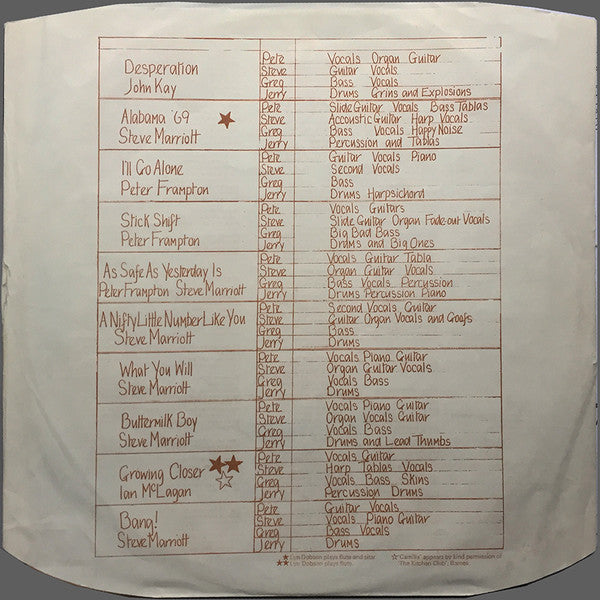 Desperation
John Kay
Pete Vocals Organ Guitar
Steve Guitar Vocals
Greg Bass Vocals
Jerry Drums Grins and Explosions
Alabama '69
Steve Marriott
Pete Slide Guitar Vocals Bass Tablas
Steve Accoustic Guitar Harp Vocals
Greg Bass Vocals Happy Noise
Jerry Percussion and Tablas
I'll Go Alone
Peter Frampton
Pete Guitar Vocals Piano
Steve Second Vocals
Greg Bass
Jerry Drums Harpsichord
Stick Shift
Peter Frampton
Pete Vocals Guitars
Steve Slide Guitar Organ Fade-out Vocals
Greg Big Bad Bass
Jerry Drums and Big Ones
As Safe As Yesterday Is
Peter Frampton Steve Marriott
Pete Vocals Guitar Tabla
Steve Organ Guitar Vocals
Greg Bass Vocals Percussion
Jerry Drums Percussion Piano
A Nifty Little Number Like You
Steve Marriott
Pete Second Vocals Guitar
Steve Guitar Organ Vocals and Goofs
Greg Bass
Jerry Drums
What You Will
Steve Marriott
Pete Vocals Piano Guitar
Steve Organ Guitar Vocals
Greg Vocals Bass
Jerry Drums
Buttermilk Boy
Steve Marriott
Pete Vocals Piano Guitar
Steve Organ Vocals Guitar
Greg Vocals Bass
Jerry Drums and Lead Thumbs
Growing Closer
Ian McLagan
Pete Vocals Guitar
Steve Harp Tablas Vocals
Greg Vocals Bass Skins
Jerry Percussion Drums
Bang!
Steve Marriott
Pete Guitar Vocals
Steve Vocals Piano Guitar
Greg Bass Vocals
Jerry Drums
★ Lyn Dobson plays flute and sitar
★★ Lyn Dobson plays flute.
☆ 'Camilla' appears by kind permission of
'The Kitchen Club', Barnes